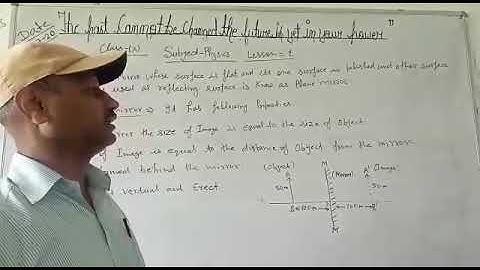 Date
-20
"The past Cannot be changed the future is yet in your power"
Class-(x) Subject-Physics Lesson = 1
whose surface is flat and its one surface is polished and other surface
used as reflecting surface is know as Plane mirror
mirror ⇒ It has following Properties.
the size of Image is equal to the size of object
of Image is equal to the distance of object from the mirror.
behind the mirror
verdual and Erect.
(Object) M (Mirror) A' (Image)
A
50m 50m
B 100m 100m B'
M